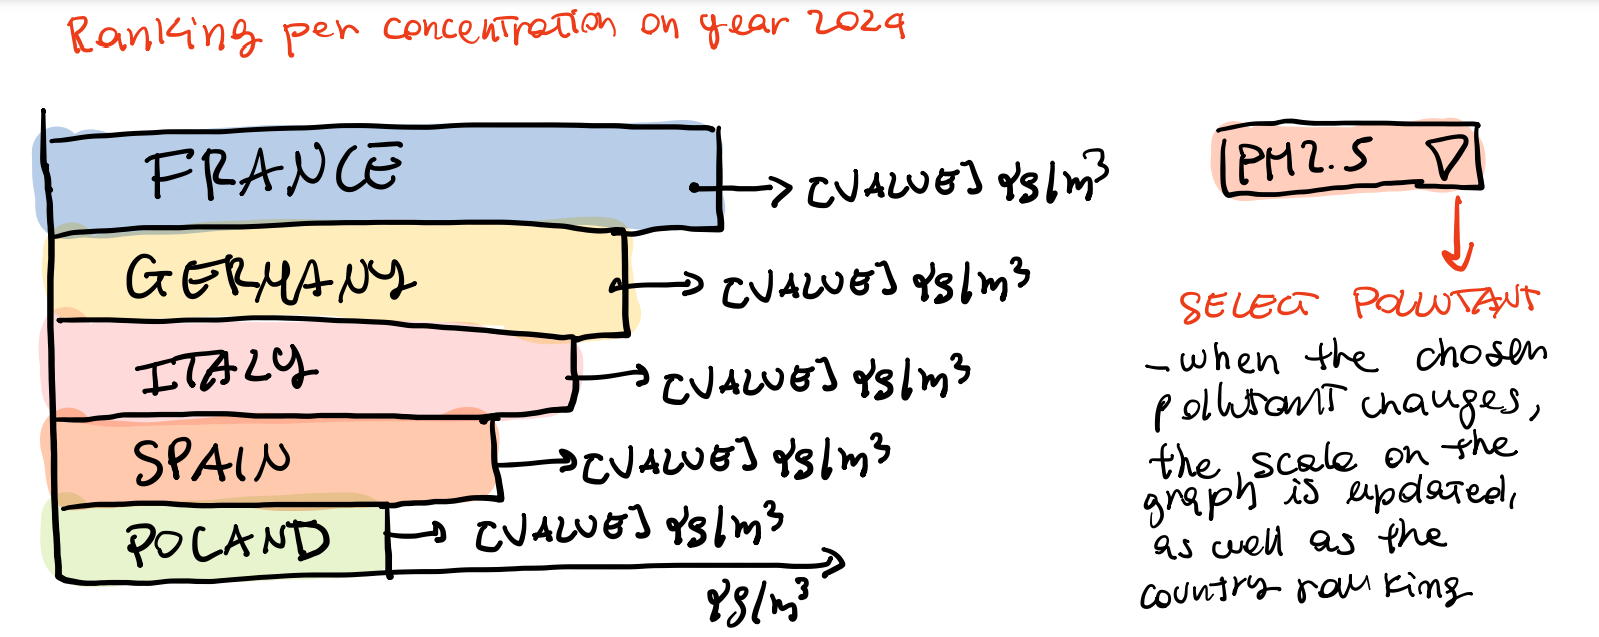 Ranking per concentration on year 2024
FRANCE
[VALUE] γg/m³
PM2.5
GERMANY
[VALUE] γg/m³
ITALY
[VALUE] γg/m³
SPAIN
[VALUE] γg/m³
POLAND
[VALUE] γg/m³
γg/m³
SELECT POLLUTANT
- when the chosen
pollutant changes,
the scale on the
graph is updated,
as well as the
country ranking